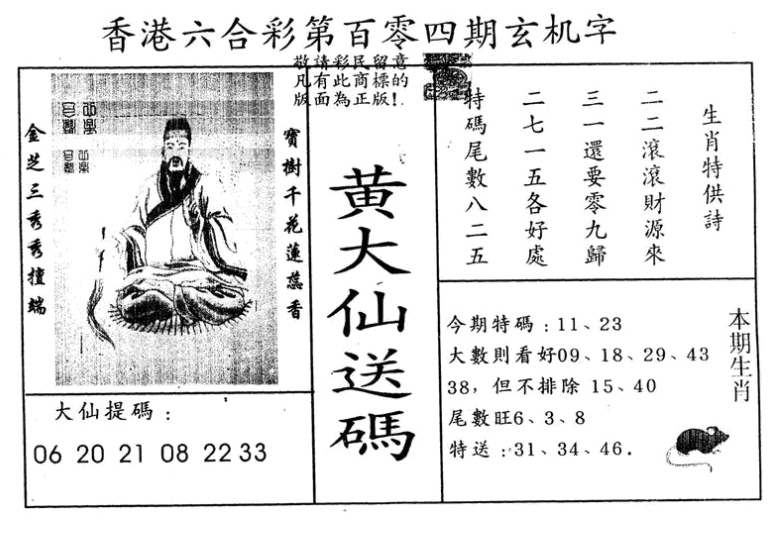 香港六合彩第百零四期玄机字
敬請彩民留意
凡有此商標的
版面為正版!.
金芝三秀秀擅端
寶樹千花蓮蕊香
黄大仙送碼
生肖特供詩
二二滾滾財源來
三一還要零九歸
二七一五各好處
特碼尾數八二五
大仙提碼：
06 20 21 08 22 33
今期特碼：11、23
大數則看好09、18、29、43
38，但不排除 15、40
尾數旺6、3、8
特送：31、34、46.
本期生肖